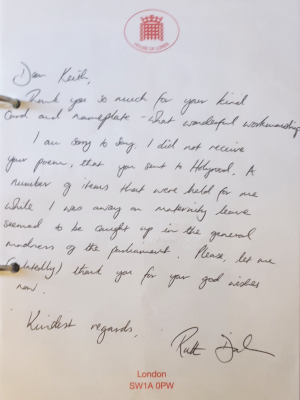 HOUSE OF LORDS
Dear Keith,
Thank you so much for your kind
Card and nameplate - what wonderful workmanship
I am sorry to say, I did not receive
your poem, that you sent to Holyrood. A
number of items that were held for me
while I was away on maternity leave
seemed to be caught up in the general
madness of the parliament. Please, let me
thank you for your good wishes
now.
Kindest regards,
Ruth
London
SW1A 0PW